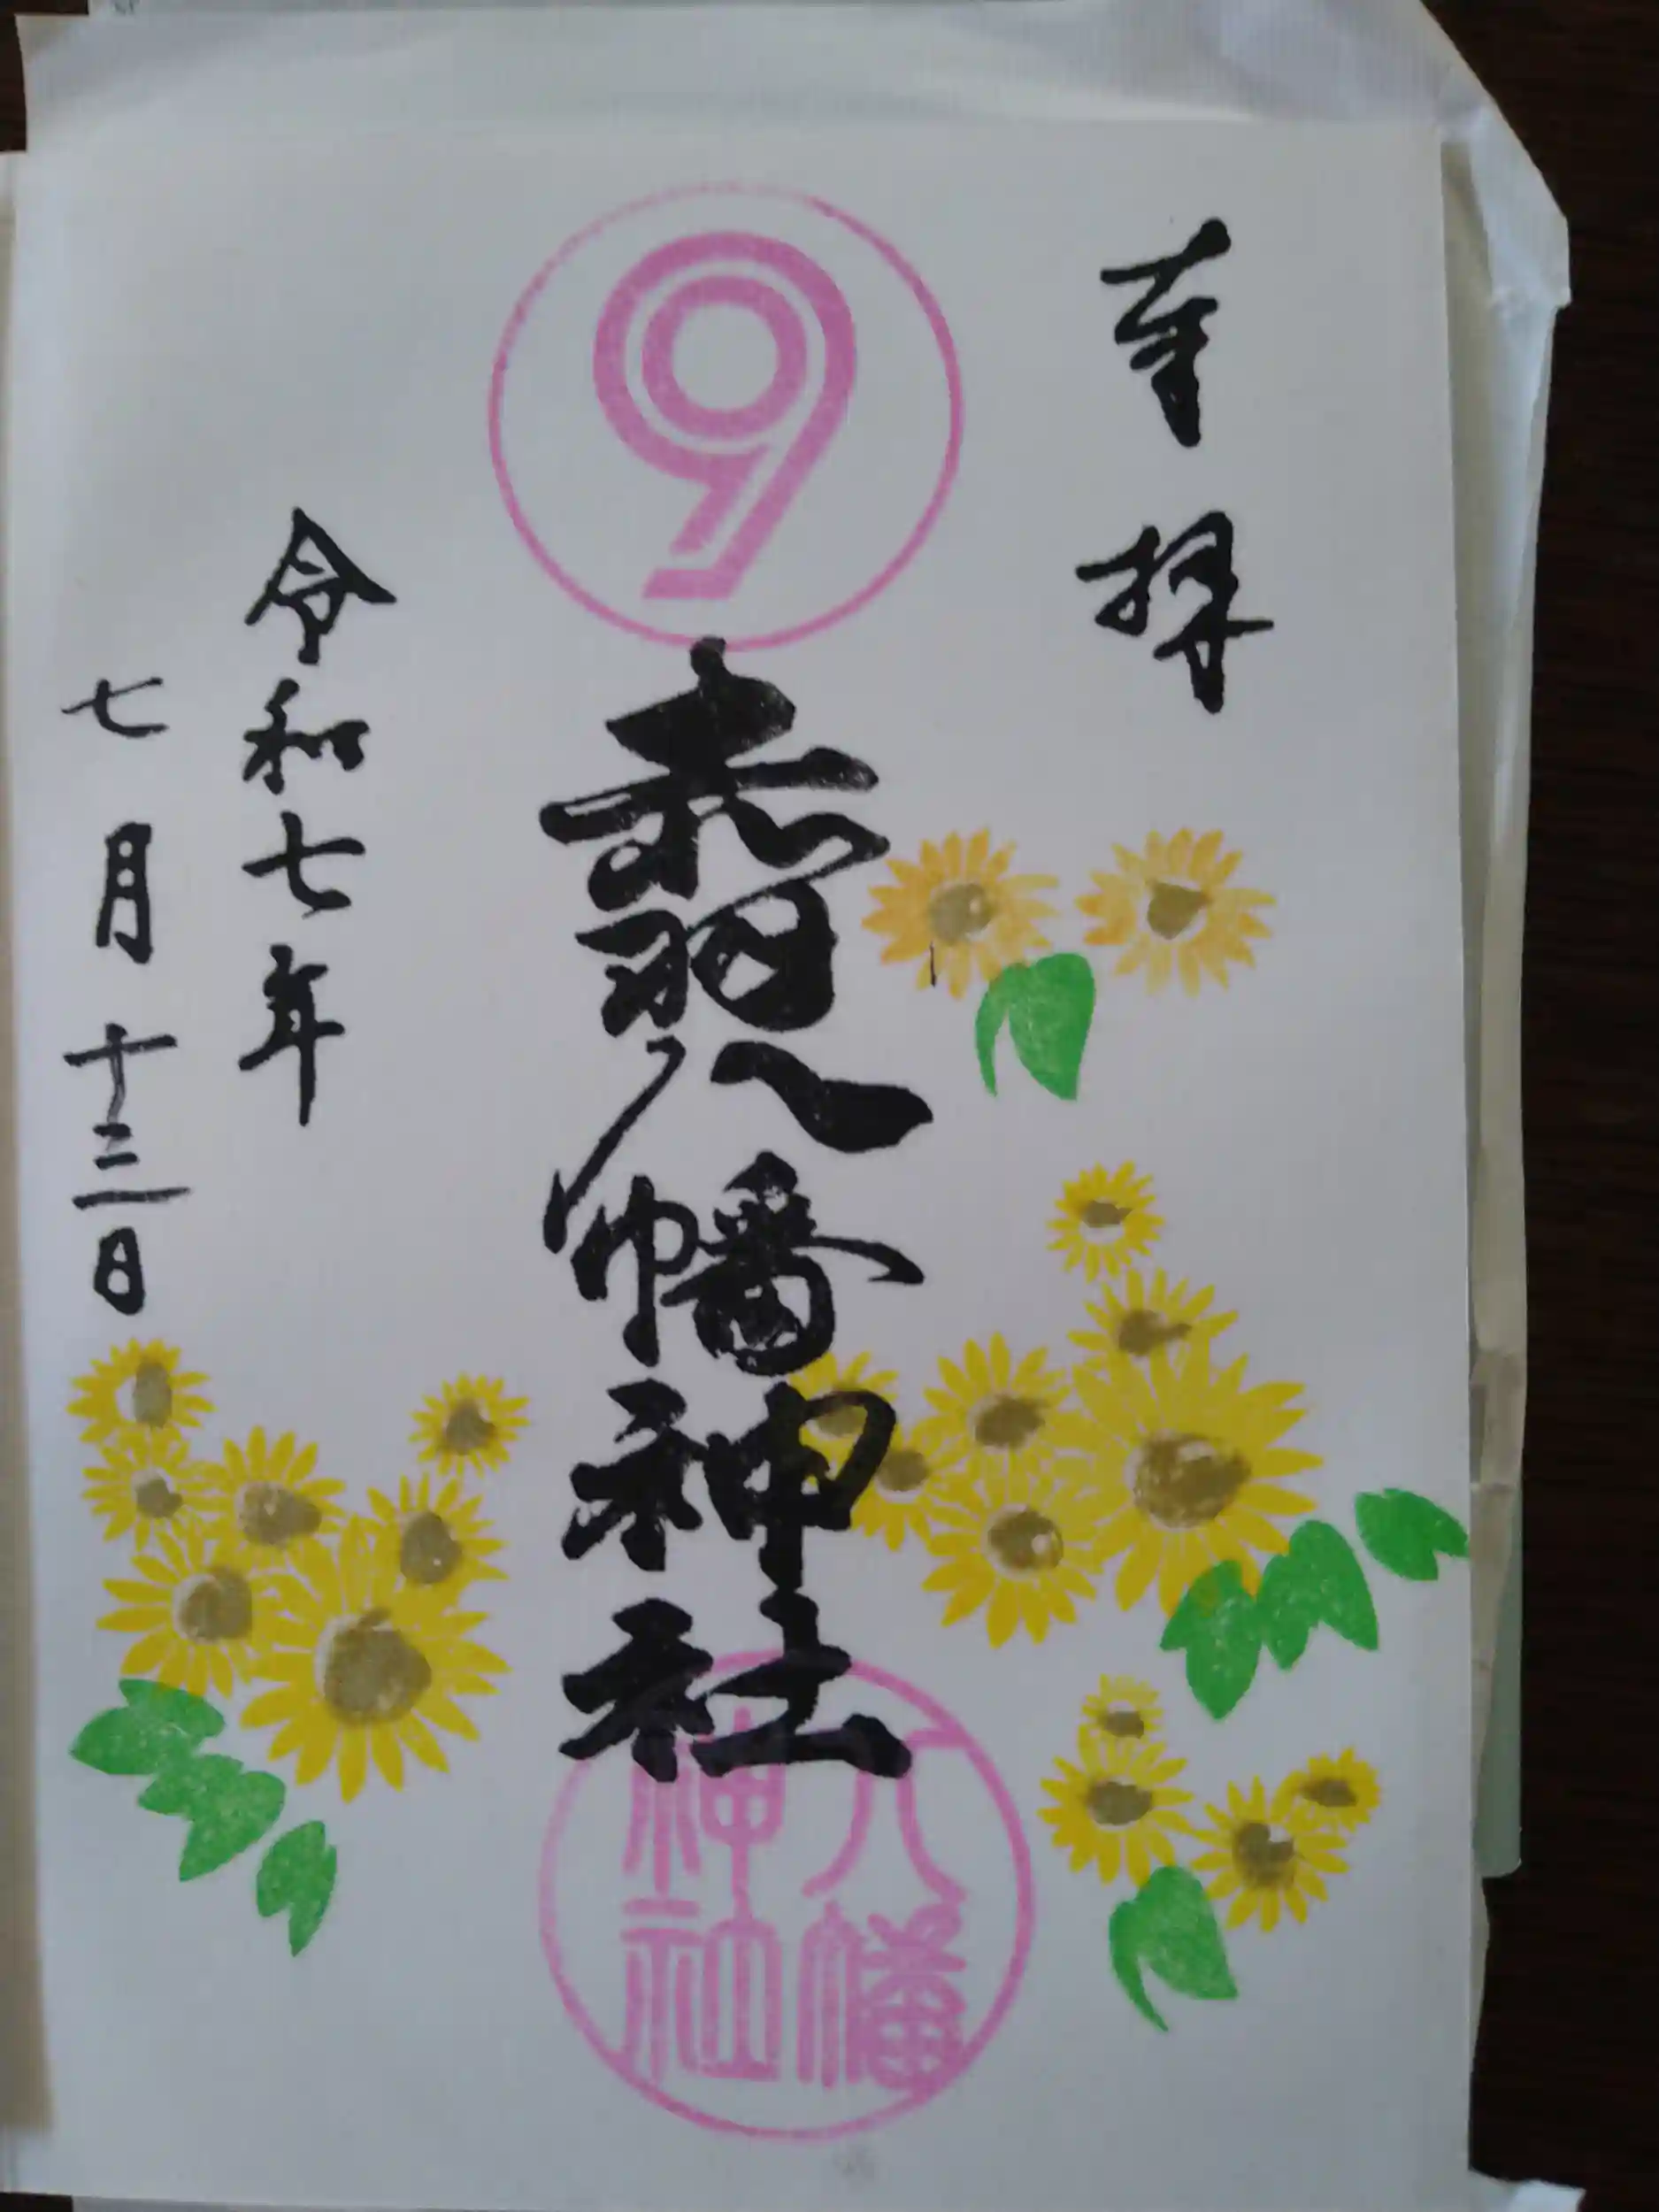 奉拝
9
赤羽八幡神社
八幡
神社
令和七年
七月十三日